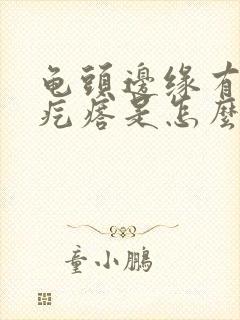 龟頭邊缘有
疙瘩是怎麽
童小鵬